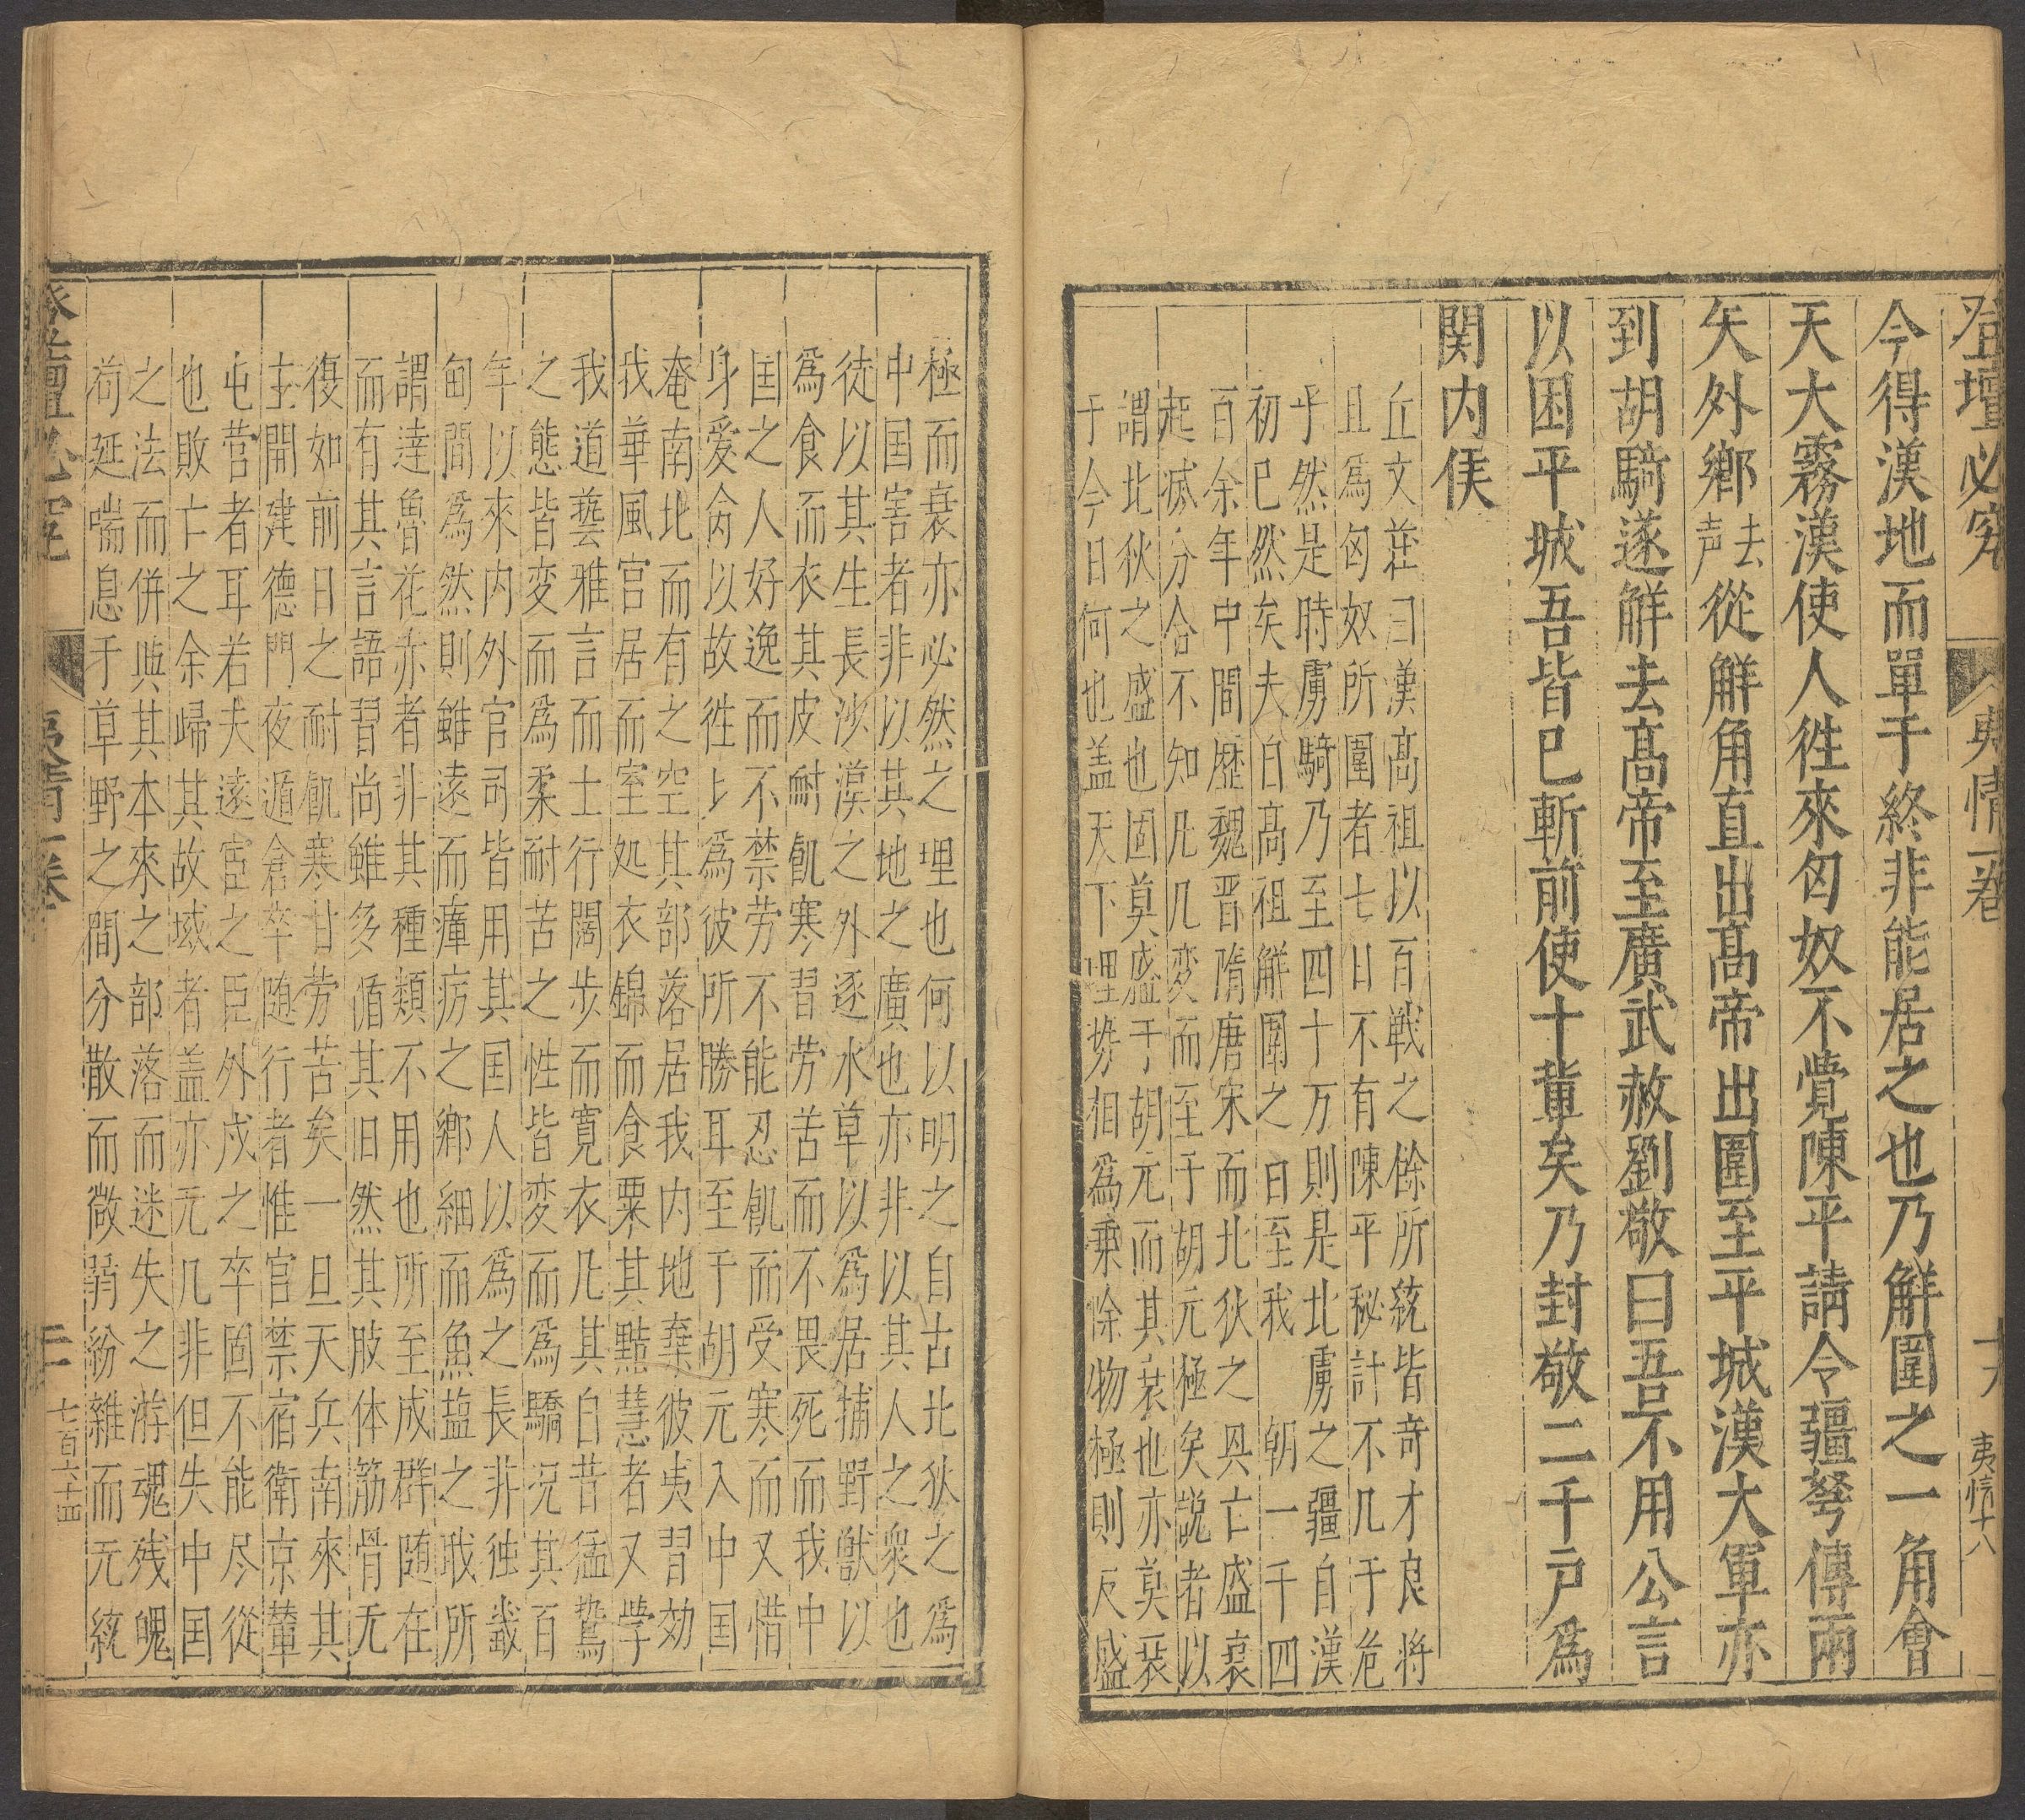 登壇必究
夷情一卷
十八
夷情十八
今得漢地而單于終非能居之也乃解圍之一角會
天大霧漢使人徃來匈奴不覺陳平請令疆弩傳兩
矢外鄉去声從觧角直出高帝出圍至平城漢大軍亦
到胡騎遂觧去高帝至廣武赦劉敬曰吾不用公言
以困平城吾皆已斬前使十軰矣乃封敬二千户爲
関内侯
丘文莊曰漢高祖以百戦之餘所統皆奇才良將
且爲匈奴所圍者七日不有陳平秘計不几于危
乎然是時虜騎乃至四十万則是北虜之疆自漢
初已然矣夫自高祖觧圍之日至我
朝一千四
百余年中間歷魏晋隋唐宋而北狄之興亡盛衰
起滅分合不知凡几変而至于胡元極矣説者以
謂北狄之盛也固莫盛于胡元而其衰也亦莫衰
于今日何也盖天下理势相爲乗除物極則反盛
極而衰亦必然之理也何以明之自古北狄之爲
中国害者非以其地之廣也亦非以其人之衆也
徒以其生長沙漠之外逐水草以爲居捕野獣以
爲食而衣其皮耐飢寒習劳苦而不畏死而我中
国之人好逸而不禁劳不能忍飢而受寒而又惜
身爱命以故徃上爲彼所勝耳至于胡元入中国
奄南北而有之空其部落居我内地棄彼夷習効
我華風宫居而室処衣錦而食粟其點慧者又学
我道藝雅言而士行闊步而寛衣凡其自昔猛鷙
之態皆変而爲柔耐苦之性皆変而爲驕况其百
年以來内外官司皆用其国人以爲之長非独畿
甸間爲然則雖遠而瘴疠之鄉細而魚塩之戢所
謂達魯花亦者非其種類不用也所至成群随在
而有其言語習尚雖多循其旧然其肢体筋骨无
復如前日之耐飢寒甘劳苦矣一旦天兵南來其
主開建德門夜遁倉卒随行者惟官禁宿衛京輦
屯营者耳若夫遠宦之臣外戍之卒固不能尽從
也敗亡之余歸其故域者盖亦无几非但失中国
之法而併與其本來之部落而迷失之游魂残魄
苟延喘息于草野之間分散而敵䏍紛雜而无統
登壇必究
夷情一卷
七百六十四